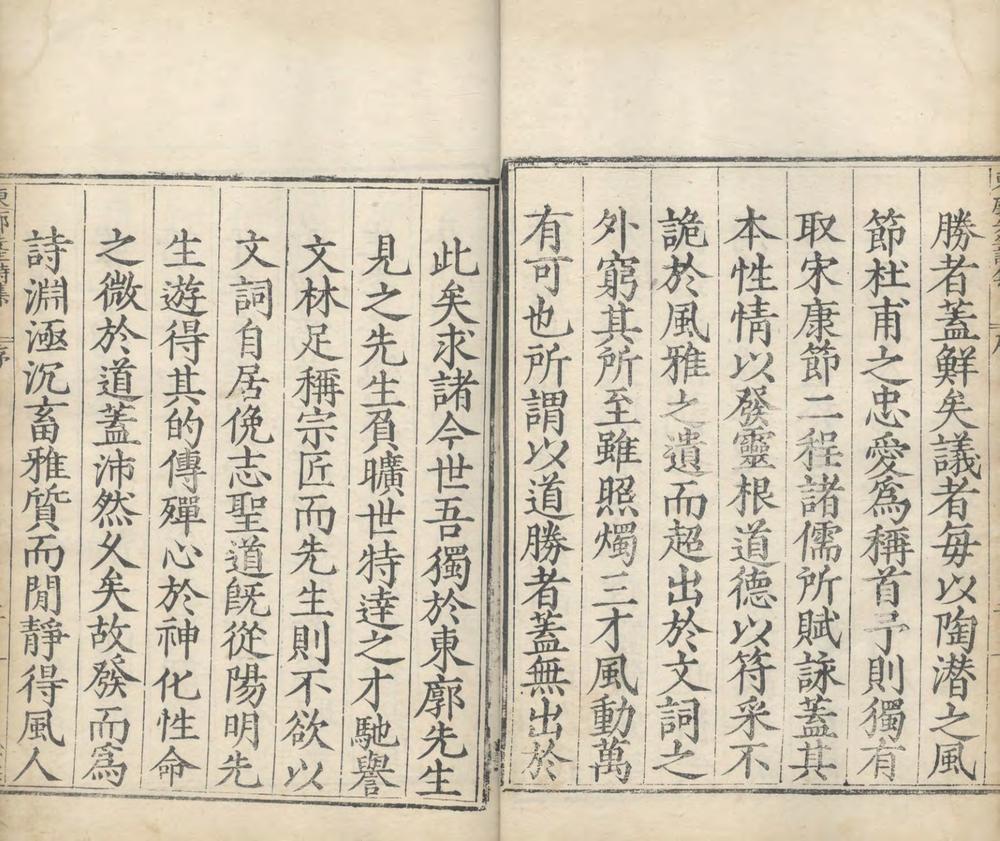 勝者蓋鮮矣議者每以陶潛之風
節杜甫之忠愛爲稱首予則獨有
取宋康節二程諸儒所賦詠蓋其
本性情以發靈根道德以符采不
詭於風雅之遺而超出於文詞之
外窮其所至雖照燭三才風動萬
有可也所謂以道勝者蓋無出於
此矣求諸今世吾獨於東廓先生
見之先生負曠世特達之才馳譽
文林足稱宗匠而先生則不欲以
文詞自居俛志聖道旣從陽明先
生遊得其的傳殫心於神化性命
之微於道蓋沛然久矣故發而爲
詩淵涵沉畜雅質而閒靜得風人